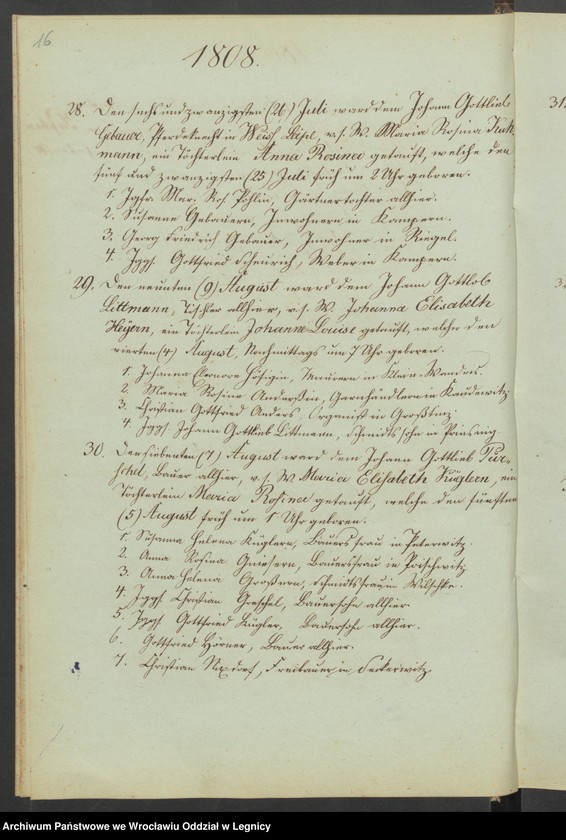 16
1808.
28. Den sechs und zwanzigsten (26) Juli ward dem Johann Gottlieb
Gebauer, Pferdeknecht in Weiß Leipel, v. s. W. Maria Rosina
mann, ein Töchterlein Anna Rosine getauft, welche den
fünf und zwanzigsten (25) Juli früh um 2 Uhr geboren.
1. Jgfr. Mar. Ros. Pohlin, Gärtnertochter allhier.
2. Susanna Gebauern, Inwohnerin in Kampern.
3. Georg Friedrich Gebauer, Inwohner in Riegel.
4. Jggs. Gottfried Scheurich, Weber in Kampern.
29. Den neunten (9) August ward dem Johann Gottlob
Littmann, Tischler allhier, v. s. W. Johanna Elisabeth
Heyern, ein Töchterlein Johanne Louise getauft, welche den
vierten (4) August, Nachmittags um 7 Uhr geboren.
1. Johanna Eleonore in Klein-Wandris.
2. Maria Rosina Anderßin, Garnhändlerin in
3. Christian Gottfried Anders, Organist in Großtinz.
4. Jggs. Johann Gottlieb Littmann, Schmidtssohn in
30. Den siebenten (7) August ward dem Johann Gottlieb Pur-
schel, Bauer allhier, v. s. W. Maria Elisabeth Küglern, ein
Töchterlein Maria Rosine getauft, welche den fünften
(5) August früh um 1 Uhr geboren.
1. Susanna Helena Küglern, Bauersfrau in Peterwitz.
2. Anna Rosina Bauersfrau in Poischwitz
3. Anna Helena Großern, Schmidtsfrau in
4. Jggs. Christian Greschel, Bauersohn allhier.
5. Jggs. Gottfried Kügler, Bauersohn allhier.
6. Gottfried Hörner, Bauer allhier.
7. Christian Nixdorf, Freibauer in
31.
Archiwum Państwowe we Wrocławiu Oddział w Legnicy